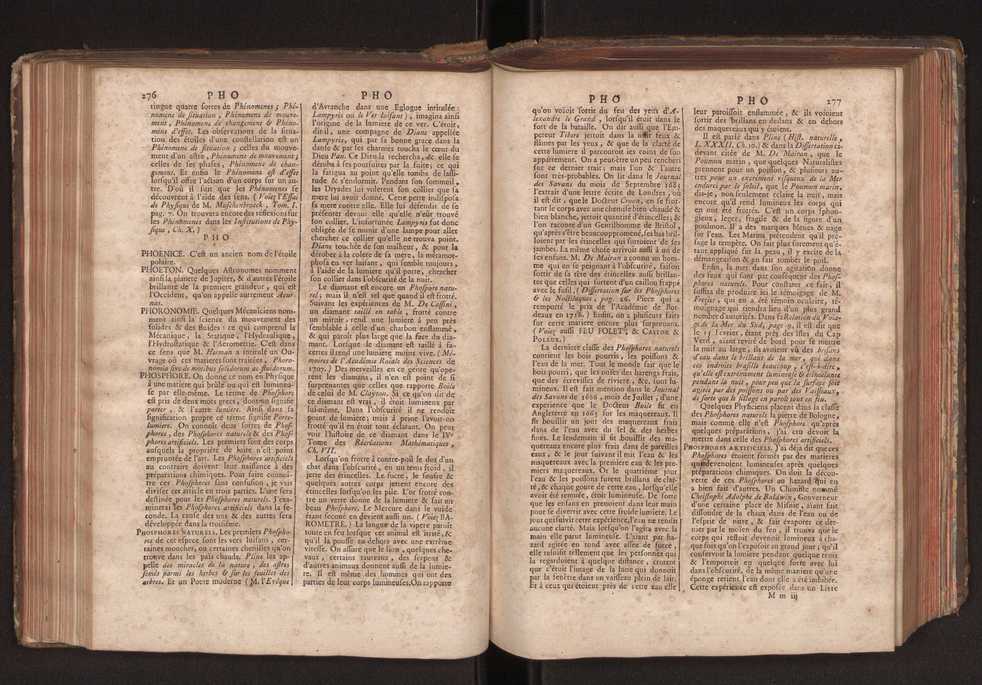 276 PHO PHO
tingue quatre sortes de Phénomenes ; Phé-
nomene de situation , Phénomene de mouve-
ment , Phénomene de changement & Phéno-
mene d'effet. Les observations de la situa-
tion des étoiles d'une constellation est un
Phénomene de situation ; celles du mouve-
ment d'un astre , Phénomene de mouvement ;
celles de ses phases , Phénomene de chan-
gement. Et enfin le Phénomene est d'effet
lorsqu'il offre l'action d'un corps sur un au-
tre. D'où il suit que les Phénomenes se
découvrent à l'aide des sens. ( Voiez l'Essai
de Physique de M. Musschenbroeck , Tom. I,
pag. 7. On trouvera encore des réflexions sur
les Phénomenes dans les Institutions de Phy-
sique , Ch. X. )
PHO
PHOENICE. C'est un ancien nom de l'étoile
polaire.
PHOETON. Quelques Astronomes nomment
ainsi la planete de Jupiter, & d'autres l'étoile
brillante de la premiere grandeur , qui est
l'Occident , qu'on appelle autrement
PHORONOMIE. Quelques Mécaniciens nom-
ment ainsi la science du mouvement des
solides & des fluides : ce qui comprend la
Mécanique , la Statique , l'Hydraulique ,
l'Hydrostatique & l'Aerometrie. C'est dans
ce sens que M. Herman a intitulé un Ou-
vrage où ces matieres sont traitées , Phoro-
nomia sive de motibus solidorum ac fluidorum.
PHOSPHORE. On donne ce nom en Physique
à une matiere qui brûle ou qui est lumineu-
se par elle-même. Le terme de Phosphore
est pris de deux mots grecs , dont un signifie
porter , & l'autre lumiere. Ainsi dans sa
signification propre ce terme signifie Porte-
lumiere. On connoît deux sortes de Phos-
phores , des Phosphores naturels & des Phos-
phores artificiels. Les premiers sont des corps
ausquels la propriété de luire n'est point
empruntée de l'art. Les Phosphores artificiels
au contraire doivent leur naissance à des
préparations chimiques. Pour faire connoî-
tre ces Phosphores sans confusion , je vais
diviser cet article en trois parties. L'une sera
destinée pour les Phosphores naturels. J'exa-
minerai les Phosphores artificiels dans la se-
conde. La cause des uns & des autres sera
développée dans la troisiéme.
PHOSPHORES NATURELS. Les premiers Phospho-
res de cet espece sont les vers luisans , cer-
taines mouches, ou certaines chenilles qu'on
trouve dans les païs chauds. Pline les ap-
pelle des miracles de la nature , des astres
semés parmi les herbes & sur les feuilles des
arbres. Et un Poete moderne ( M. l'Evêque
d'Avranche dans une Eglogue intitulée :
Lampyris ou le Ver luisant ) , imagina ainsi
l'origine de la lumiere de ce ver. C'étoit,
dit-il , une compagne de Diane appellée
Lampyris, qui par sa bonne grace dans la
danse & par les charmes toucha le cœur du
Dieu Pan. Ce Dieu la rechercha, & elle se
déroba à ses poursuites par la fuite ; ce qui
la fatigua au point qu'elle tomba de lassi-
tude & s'endormit. Pendant son sommeil ,
les Dryades lui volerent son collier que sa
mere lui avoit donné. Cette perte indisposa
sa mere contre elle. Elle lui défendit de se
présenter devant elle qu'elle n'eût trouvé
son collier. L'infortunée Lampyris fut donc
obligée de se munir d'une lampe pour aller
chercher ce collier qu'elle ne trouva point.
Diane touchée de son malheur , & pour la
dérober à la colere de sa mere, la métamor-
phosa en ver luisant , qui semble toujours ,
à l'aide de la lumiere qu'il porte , chercher
son collier dans l'obscurité de la nuit.
Le diamant est encore un Phosphore natu-
rel ; mais il n'est tel que quand il est frotté.
Suivant les expériences de M. De Cassini ,
un diamant taillé en table , frotté contre
un miroir , rend une lumiere à peu près
semblable à celle d'un charbon enflammé ,
& qui paroît plus large que la face du dia-
mant. Lorsque le diamant est taillé à fa-
cettes il rend une lumiere moins vive. (Mé-
moires de l'Académie Roiale des Sciences de
1707. ) Des merveilles en ce genre qu'ope-
rent les diamans , il n'en est point de si
surprenantes que celles que rapporte Boile
de celui de M. Clayton. Si ce qu'on dit de
ce diamant est vrai , il étoit lumineux par
lui-même. Dans l'obscurité il ne rendoit
point de lumiere ; mais à peine l'avoit-on
frotté qu'il en étoit tout éclatant. On peut
voir l'histoire de ce diamant dans le IVe
Tome des Récréations Mathématiques ,
Ch. VII.
Lorsqu'on frotte à contre-poil le dos d'un
chat dans l'obscurité , en un tems froid , il
jette des étincelles. Le sucre , le soufre &
quelques autres corps jettent encore des
étincelles lorsqu'on les pile. L'or frotté con-
tre un verre donne de la lumiere & fait un
beau Phosphore. Le Mercure dans le vuide
étant secoué en devient aussi un. ( Voiez BA-
ROMETRE. ) La langue de la vipere paroît
toute en feu lorsque cet animal est irrité , &
qu'il la pousse au dehors avec une extrême
vitesse. On assure que le lion , quelques che-
vaux , certains taureaux , des serpens &
d'autres animaux donnent aussi de la lumie-
re. Il est même des hommes qui ont des
parties de leur corps lumineuses. On rapporte
PHO PHO 277
qu'on voïoit sortir du feu des yeux d'A-
lexandre le Grand , lorsqu'il étoit dans le
fort de la bataille. On dit aussi que l'Em-
pereur Tibere jettoit dans la nuit feux &
flâmes par les yeux , & que de la clarté de
cette lumiere il parcouroit les coins de son
appartement. On a peut-être un peu encheri
sur ce dernier trait ; mais l'un & l'autre
sont très-probables. On lit dans le Journal
des Savans du mois de Septembre 1683
l'extrait d'une lettre écrite de Londres , où
il est dit , que le Docteur Croon, en se frot-
tant le corps avec une chemise bien chaude &
bien blanche, jettoit quantité d'étincelles ; &
l'on raconte d'un Gentilhomme de Bristol ,
qu'après s'être beaucoup promené, ses bas bril-
loient par les étincelles qui sortoient de ses
jambes. La même chose arrivoit aussi à un de
ses enfans. M. De Mairan a connu un hom-
me qui en se peignant à l'obscurité , faisoit
sortir de sa tête des étincelles aussi brillan-
tes que celles qui sortent d'un caillou frappé
avec le fusil ( Dissertation sur les Phosphores
& les Noctiluques ; pag. 26. Piece qui a
remporté le prix de l'Académie de Bor-
deaux en 1718. ) Enfin, on a plusieurs faits
sur cette matiere encore plus surprenans.
( Voiez aussi FEU FOLET ; & CASTOR &
POLLUX. )
La derniere classe des Phosphores naturels
contient les bois pourris , les poissons &
l'eau de la mer. Tout le monde sait que le
bois pourri , que les œufs des harengs frais,
que des écrevisses de riviere , &c. sont lu-
mineux. Il est fait mention dans le Journal
des Savans de 1666 , mois de Juillet , d'une
experience que le Docteur Boile fit en
Angleterre en 1665 sur les maquereaux. Il
fit bouillir un jour des maquereaux frais
dans de l'eau avec du sel & des herbes
fines. Le lendemain il fit bouillir des ma-
quereaux encore plus frais dans de pareilles
eaux , & le jour suivant il mit l'eau & les
maquereaux avec la premiere eau & les pre-
miers maquereaux. Or le quatriéme jour
l'eau & les poissons furent brillans de clar-
té, & chaque goute de cette eau, lorsqu'elle
avoit été remuée , étoit lumineuse. De sorte
que les enfans en prenoient dans leur main
pour se divertir avec cette froide lumiere. Le
jour qui suivit cette expérience, l'eau ne rendit
aucune clarté. Mais lorsqu'on l'agita avec la
main elle parut lumineuse. L'aiant par ha-
zard agitée en rond avec assez de force ,
elle reluisit tellement que les personnes qui
la regardoient à quelque distance , crurent
que c'étoit l'image de la lune qui donnoit
par la fenêtre dans un vaisseau plein de lait.
Et à ceux qui étoient près de cette eau elle
leur paroissoit enflammée , & ils voïoient
sortir des brillans en dedans & en dehors
des maquereaux qui y étoient.
Il est parlé dans Pline (Hist. naturelle ,
L. XXXII. Ch. 10.) & dans la Dissertation ci-
devant citée de M. De Mairan , que le
Poumon marin , que quelques Naturalistes
prennent pour un poisson , & plusieurs au-
tres pour un excrement visqueux de la Mer
endurci par le soleil, que le Poumon marin,
dis-je , non seulement éclaire la nuit , mais
encore qu'il rend lumineux les corps qui
en ont été frottés. C'est un corps spon-
gieux, leger, fragile & de la figure d'un
poulmon. Il a des marques bleues & nage
sur l'eau. Les Marins prétendent qu'il pré-
sage la tempête. On sait plus surement qu'é-
tant appliqué sur la peau , il y excite de la
démangeaison & en fait tomber le poil.
Enfin , la mer dans son agitation donne
des feux qui sont par conséquent des Phos-
phores naturels. Pour constater ce fait , il
suffira de produire ici le témoignage de M.
Frezier , qui en a été témoin oculaire , té-
moignage qui tiendra lieu d'un plus grand
nombre d'autorités. Dans la Relation du Voïa-
ge de la Mer du Sud, page 9, il est dit que
le 15 Fevrier , étant près des Isles du Cap
Verd , aiant reviré de bord pour se mettre
la nuit au large , ils avoient vû des brisans
d'eau dans le brillant de la mer , qui dans
ces endroits brasille beaucoup , c'est-à-dire ,
qu'elle est extrêmement lumineuse & étincellante
pendant la nuit , pour peu que sa surface soit
agitée par des poissons ou par des Vaisseaux,
de sorte que le sillage en paroît tout en feu.
Quelques Physiciens placent dans la classe
des Phosphores naturels la pierre de Bologne,
mais comme elle n'est Phosphore qu'après
quelques préparations , j'ai cru devoir la
mettre dans celle des Phosphores artificiels.
PHOSPHORES ARTIFICIELS. J'ai déja dit que ces
Phosphores étoient formés par des matieres
qui devenoient lumineuses après quelques
préparations chimiques. On doit la décou-
verte de ces Phosphores au hazard qui en
a bien fait d'autres. Un Chimiste nommé
Christophe Adolphe de Balduin , Gouverneur
d'une certaine place de Misnie , aiant fait
dissoudre de la chaux dans de l'eau ou de
l'esprit de nitre , & fait évaporer ce der-
nier par le moïen du feu , il trouva que le
corps qui restoit devenoit lumineux à cha-
que fois qu'on l'exposoit au grand jour ; qu'il
conservoit la lumiere pendant quelque tems
& l'emportoit en quelque sorte avec lui
dans l'obscurité, de la même maniere qu'une
éponge retient l'eau dont elle a été imbibée.
Cette expérience est exposée dans un Livre
M m iij